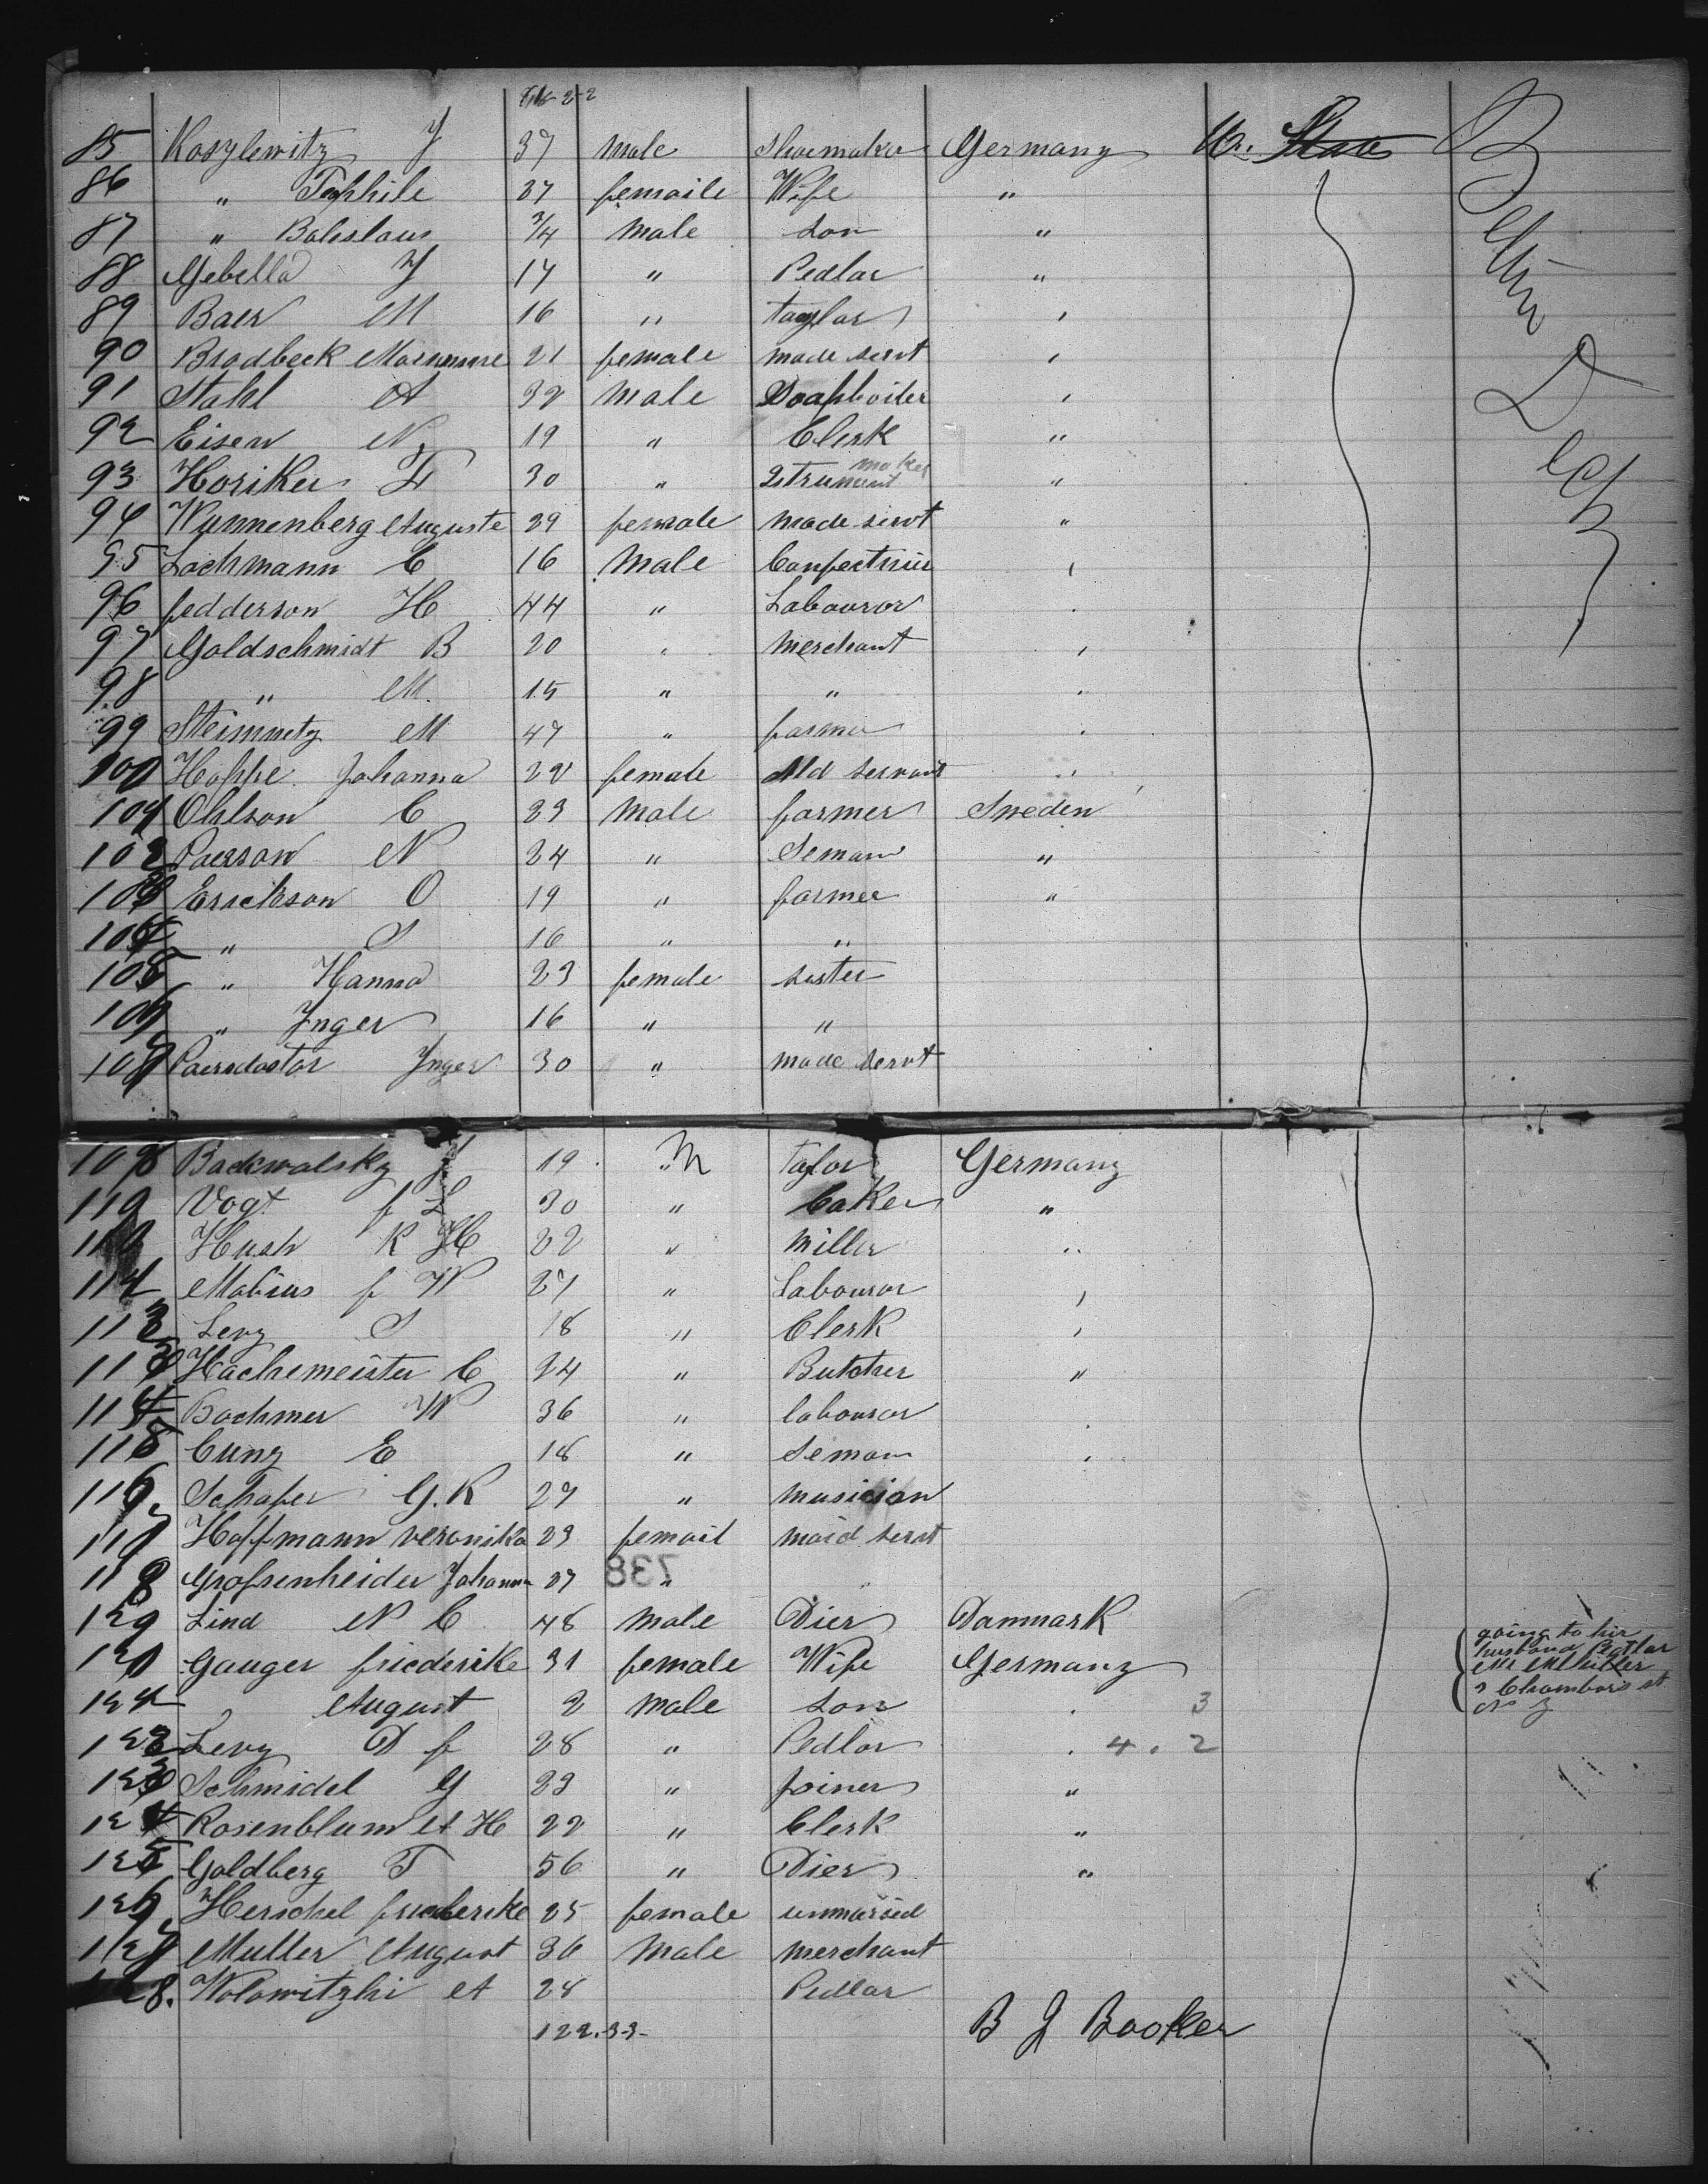 85 Koszlewitz J 37 male Shoemaker Germany U. State
86 " Tephile 27 femaile Wife "
87 " Boleslaus 3/4 Male Son "
88 Gebella J 17 " Pedlar "
89 Baer M 16 " taylor "
90 Brodbeck 21 female made servt "
91 Stahl A 32 Male Soapboiler "
92 Eisen N 19 " Clerk "
93 Horiker F 30 " Istrument maker "
94 Wunnenberg Auguste 29 female made servt "
95 Lochmann C 16 Male "
96 fedderson H 44 " Labouror "
97 Goldschmidt B 20 " Merchant "
98 " M 15 " " "
99 Steinmetz M 47 " farmer "
100 Hoppe Johanna 22 female Md servant "
101 Ohlson C 23 Male farmer Sweden
102 Paerson N 24 " Seman "
103 Erickson O 19 " farmer "
104 " S 16 " "
105 " Hanna 23 female sister
106 " Inger 16 " "
107 Paersdostar Inger 30 " made servt
108 Backwalsky J 19 M Taylor Germany
109 Vogt f L 30 " baker "
110 Hush K H 22 " Miller "
111 Mobius f W 27 " Labouror "
112 Levy S 18 " Clerk "
113 Hachemeister C 24 " Butcher "
114 Bochmer W 36 " labouror "
115 Cunz E 18 " Seman "
116 Schafer G. K 27 " musician
117 Hoffmann veronika 23 femail maid servt
118 Grossenheider Johanna 27 "
738
119 Lind N C 48 Male Dier Danmark
120 Gauger friederike 31 female Wife Germany
going to hir husband Pedlar
Chambers st
N 3
121 " August 2 Male Son " 3
122 Levy D f 28 " Pedlar " 4. 2
123 Schmidel G 23 " Joiner "
124 Rosenblum A H 22 " Clerk "
125 Goldberg T 56 " Dier "
126 Herschel friederike 25 female unmarried
127 Muller August 36 Male Merchant
128. Wolowitzki A 28 Pedlar
122.3.3- B J Booker